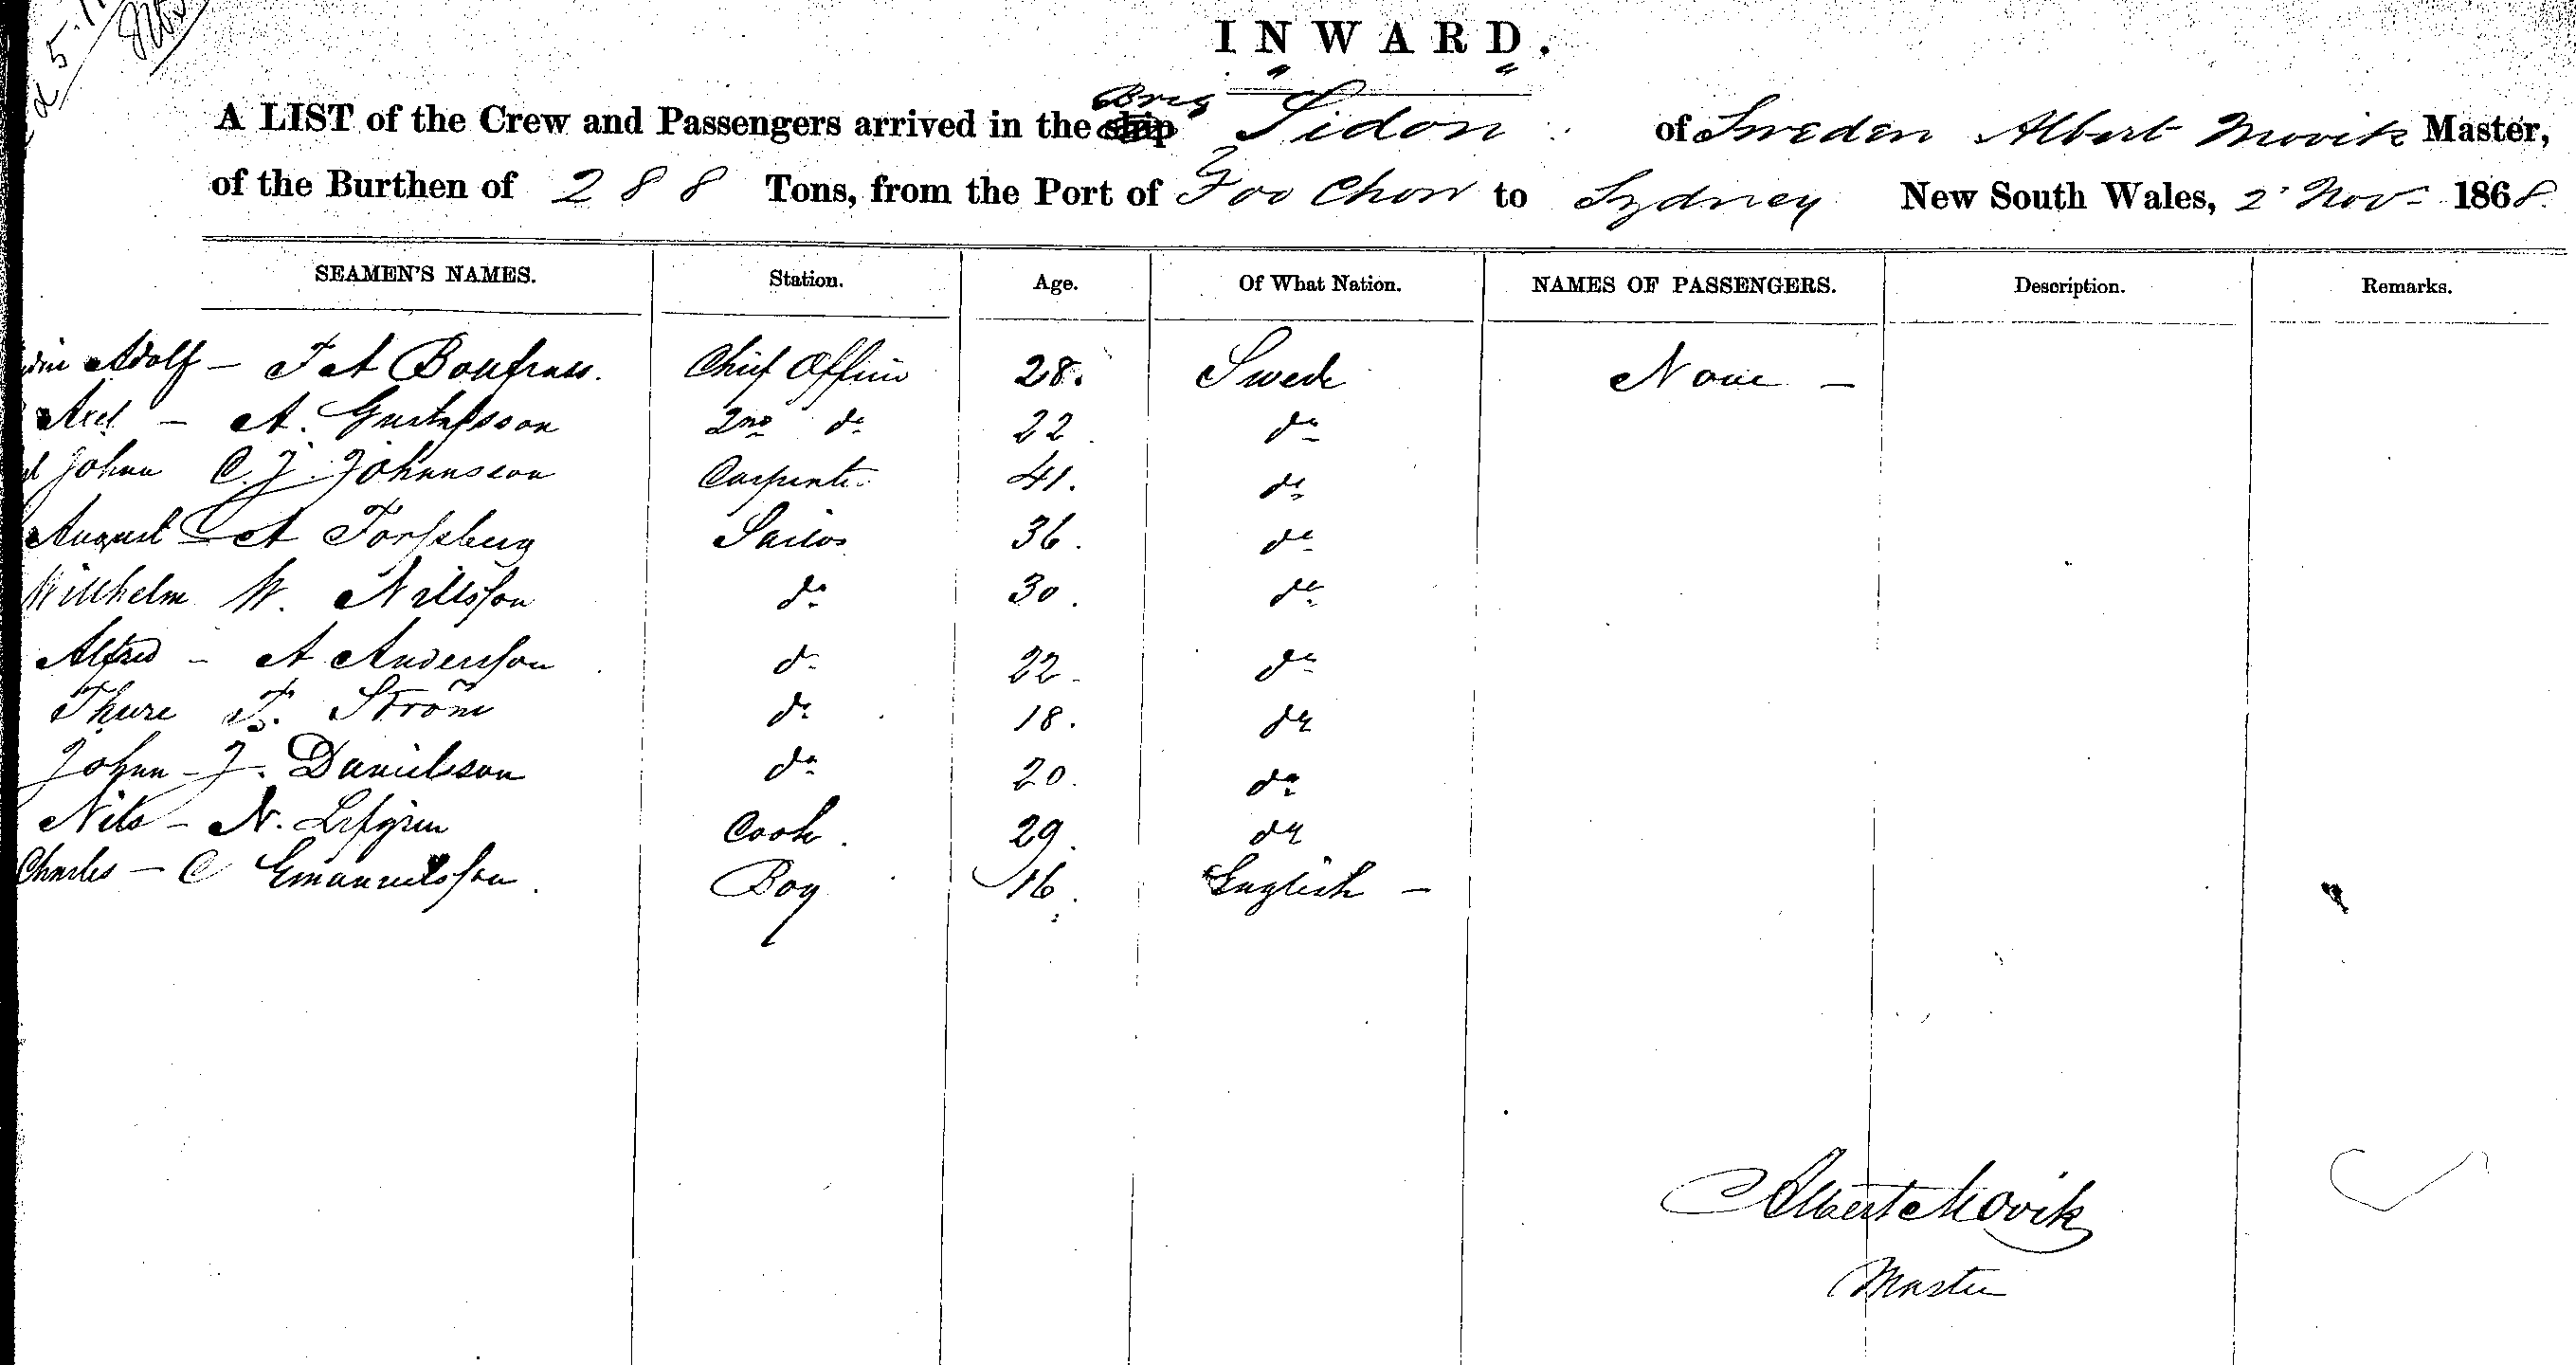 INWARD.
A LIST of the Crew and Passengers arrived in the ship Brig Sidon of Sweden Albert Movik Master,
of the Burthen of 288 Tons, from the Port of Foo Chow to Sydney New South Wales, 2 Nov 1868.
SEAMEN'S NAMES. Station. Age. Of What Nation. NAMES OF PASSENGERS. Description. Remarks.
Adolf — Chief Officer 28. Swede None —
Axel — A. Gustafsson 2nd do 22. do
Johan C. J. Johansson Carpenter 41. do
August — A Forssberg Sailor 36. do
Wilhelm W. Nilsson do 30. do
Alfred — A Andersson do 22 do
Thure T. Ström do 18. do
Johan — J. Danielsson do 20. do
Nils — N. Lofgren Cook. 29. do
Charles — C Emanuelsson. Boy 16. English —
Albert Movik
Master